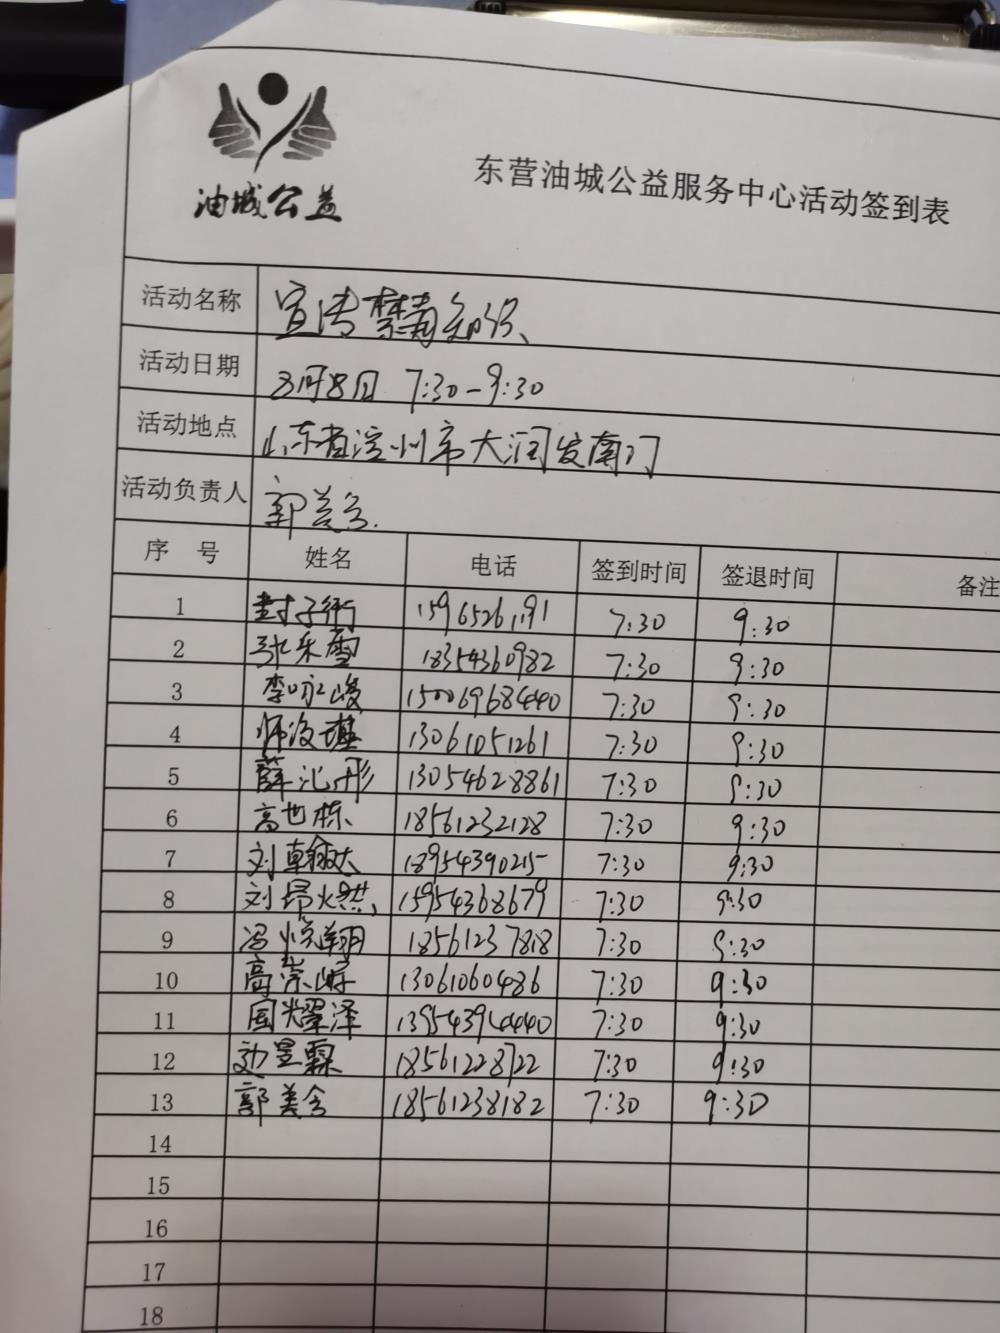 油城公益
东营油城公益服务中心活动签到表
活动名称 宣传禁毒知识、
活动日期 8月8日 7:30-9:30
活动地点 山东省滨州市大润发南门
活动负责人 郭美含.
序 号 姓名 电话 签到时间 签退时间 备注
1 封子衔 15965261191 7:30 9:30
2 张乐雪 18354360982 7:30 9:30
3 李咏峻 150069684440 7:30 9:30
4 13061051261 7:30 9:30
5 薛沁彤 13054628861 7:30 9:30
6 高世栋 18561232128 7:30 9:30
7 刘翰达 18954390215 7:30 9:30
8 刘昂燃、 15954368679 7:30 9:30
9 冯悦翔 18561237818 7:30 9:30
10 高崇峪 13061060486 7:30 9:30
11 国耀泽 13954394440 7:30 9:30
12 刘昱霖 18561228722 7:30 9:30
13 郭美含 18561238182 7:30 9:30
14
15
16
17
18